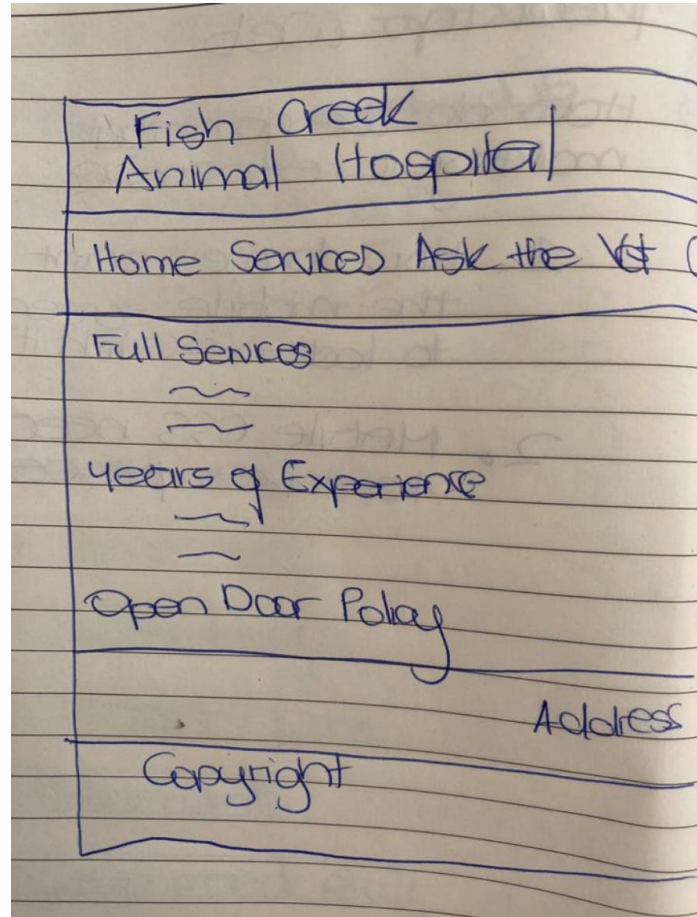 Fish Creek
Animal Hospital
Home Services Ask the Vet
Full Services
Years of Experience
Open Door Policy
Address
Copyright